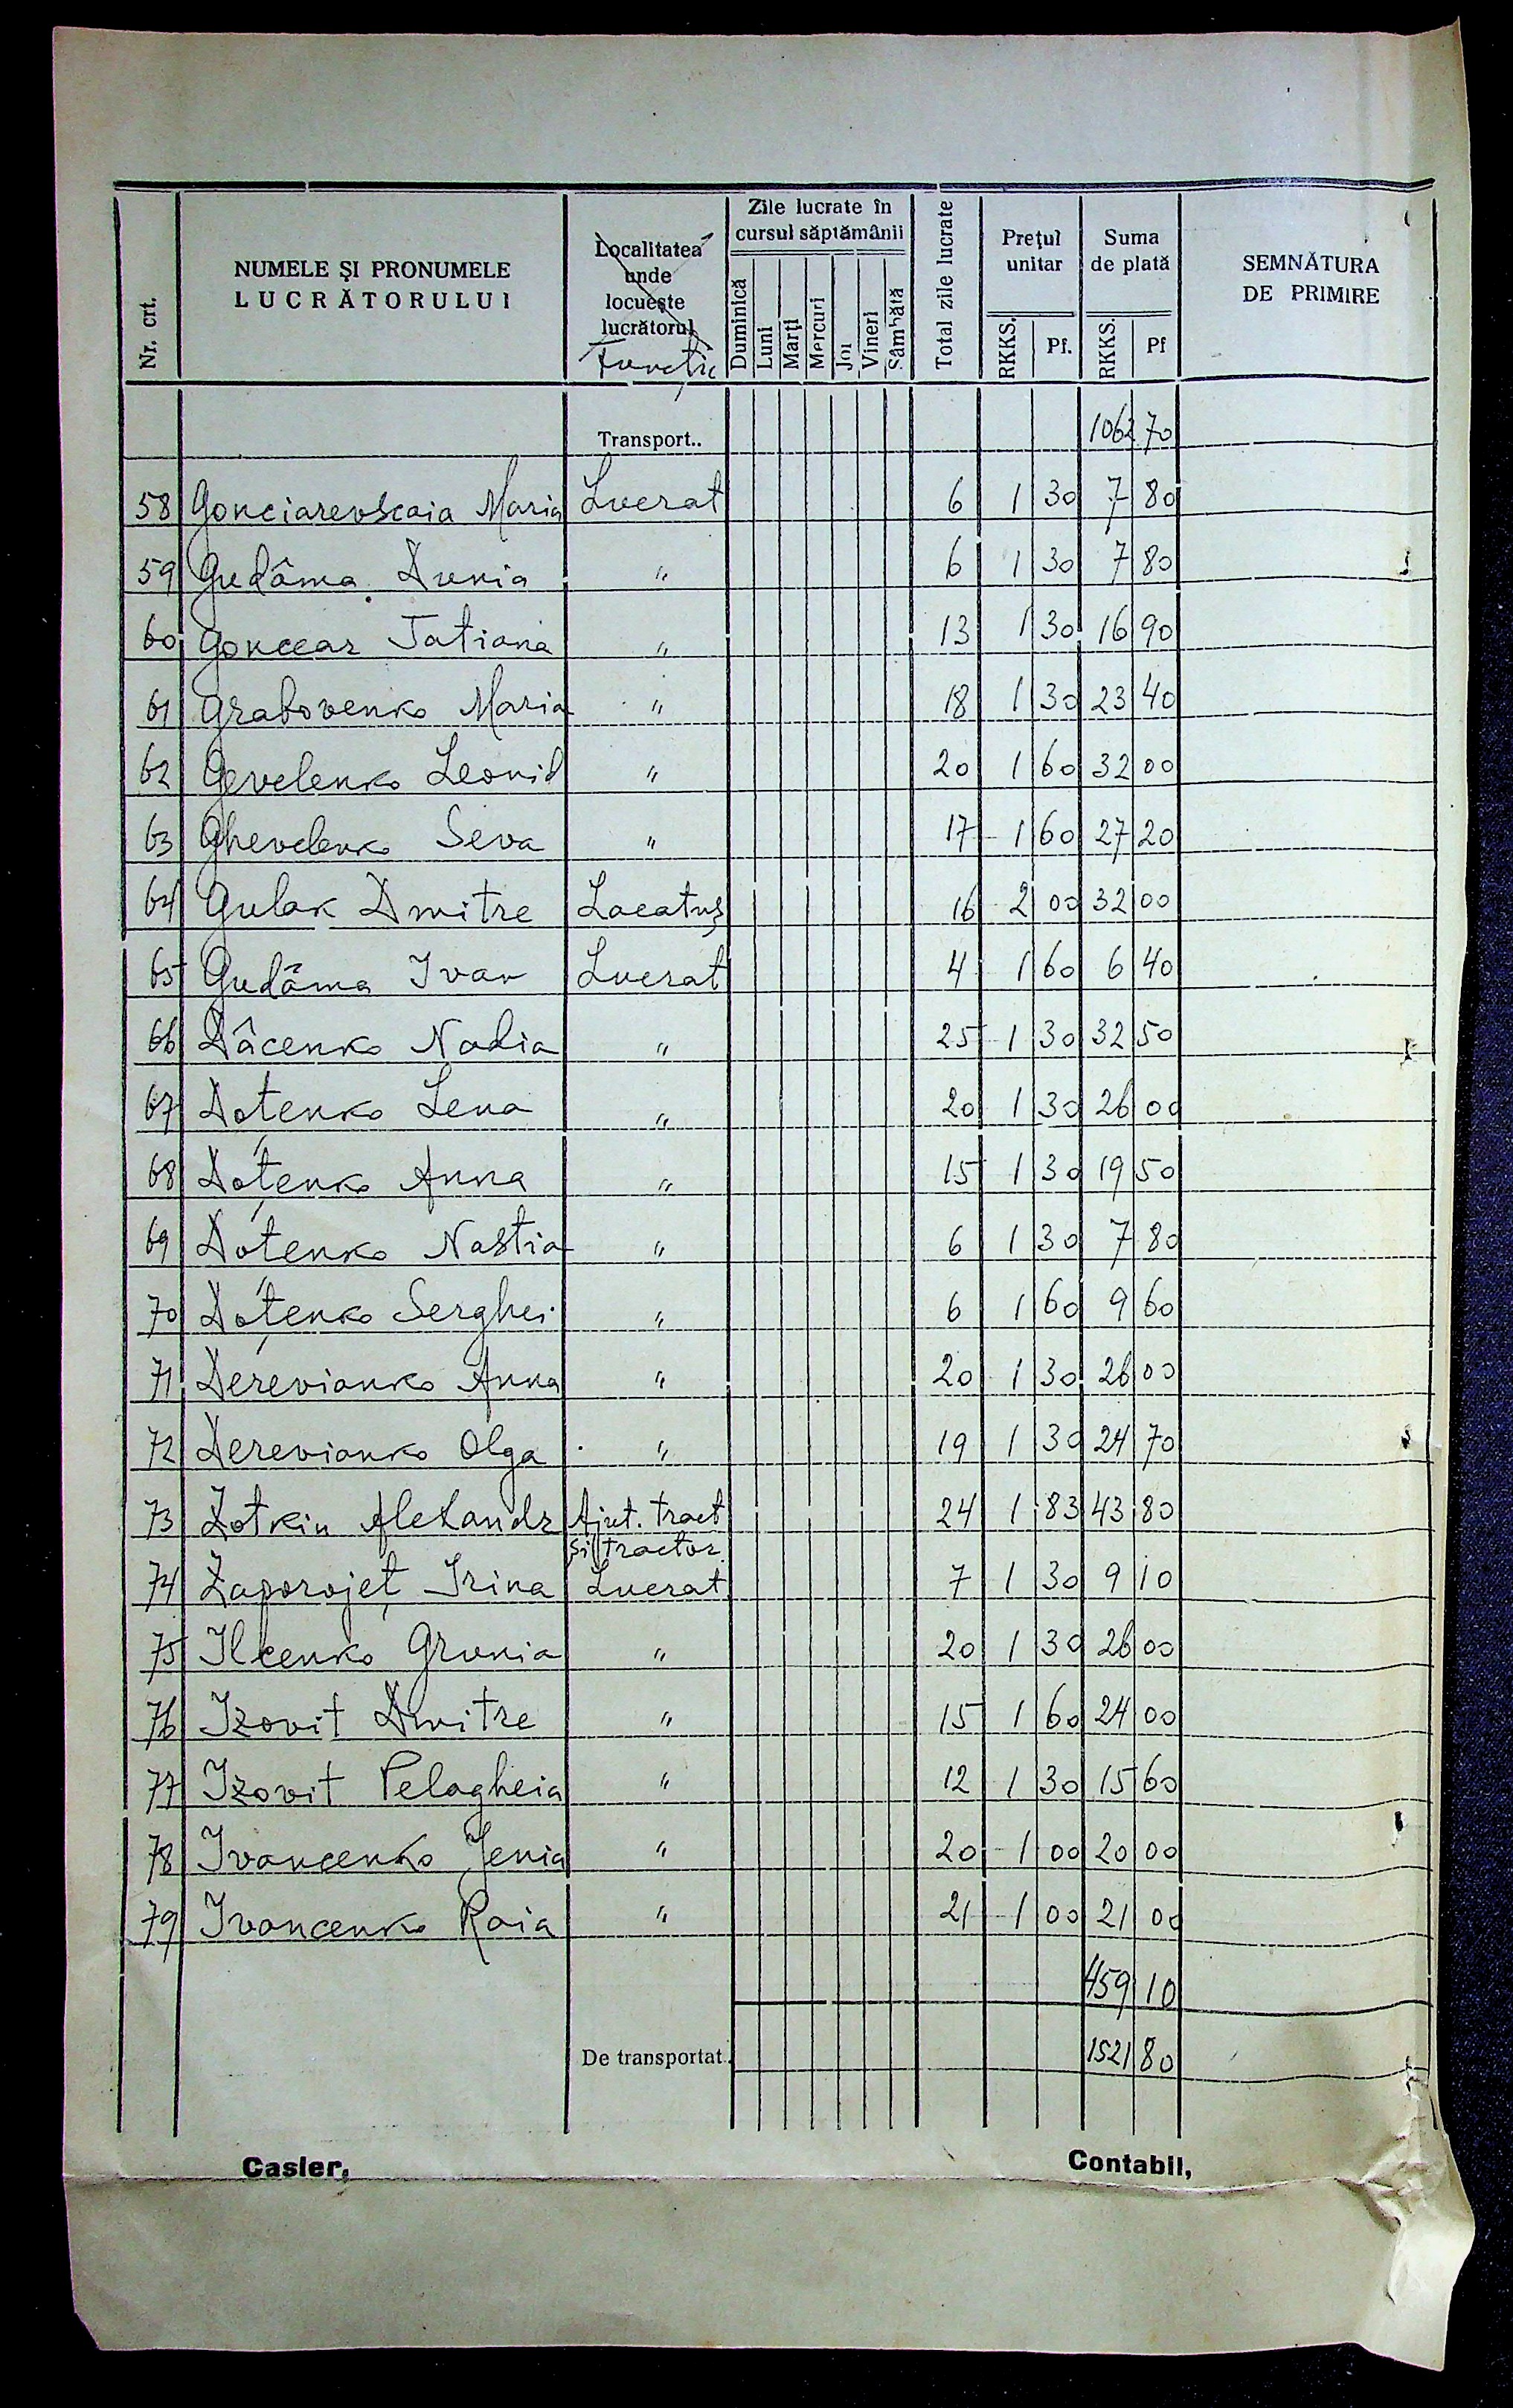 Nr. crt. NUMELE ȘI PRONUMELE LUCRĂTORULUI Localitatea unde locuește lucrătorul Functie Zile lucrate în cursul săptămânii Total zile lucrate Prețul unitar Suma de plată SEMNĂTURA DE PRIMIRE
Duminică Luni Marți Mercuri Joi Vineri Sâmbătă RKKS. Pf. RKKS. Pf
Transport.. 1062 70
58 Gonciarevscaia Maria Lucrat 6 1 30 7 80
59 Gudâma Dunia " 6 1 30 7 80
60 Goncear Tatiana " 13 1 30 16 90
61 Grabovenko Maria " 18 1 30 23 40
62 Gevelenko Leonid " 20 1 60 32 00
63 Ghevelenko Seva " 17 1 60 27 20
64 Gulak Dmitre Lacatuș 16 2 00 32 00
65 Gudâma Ivan Lucrat 4 1 60 6 40
66 Dâcenko Nadia " 25 1 30 32 50
67 Doțenko Lena " 20 1 30 26 00
68 Doțenko Anna " 15 1 30 19 50
69 Doțenko Nastia " 6 1 30 7 80
70 Doțenko Serghei " 6 1 60 9 60
71 Derevianko Anna " 20 1 30 26 00
72 Derevianko Olga " 19 1 30 24 70
73 Zotkin Alexandr Ajut. tract 24 1 83 43 80
și tractor
74 Zaporojeț Irina Lucrat 7 1 30 9 10
75 Ilcenko Grunia " 20 1 30 26 00
76 Izovit Dmitre " 15 1 60 24 00
77 Izovit Pelagheia " 12 1 30 15 60
78 Ivancenko Jenia " 20 1 00 20 00
79 Ivancenko Raia " 21 1 00 21 00
459 10
De transportat. 1521 80
Casier, Contabil,